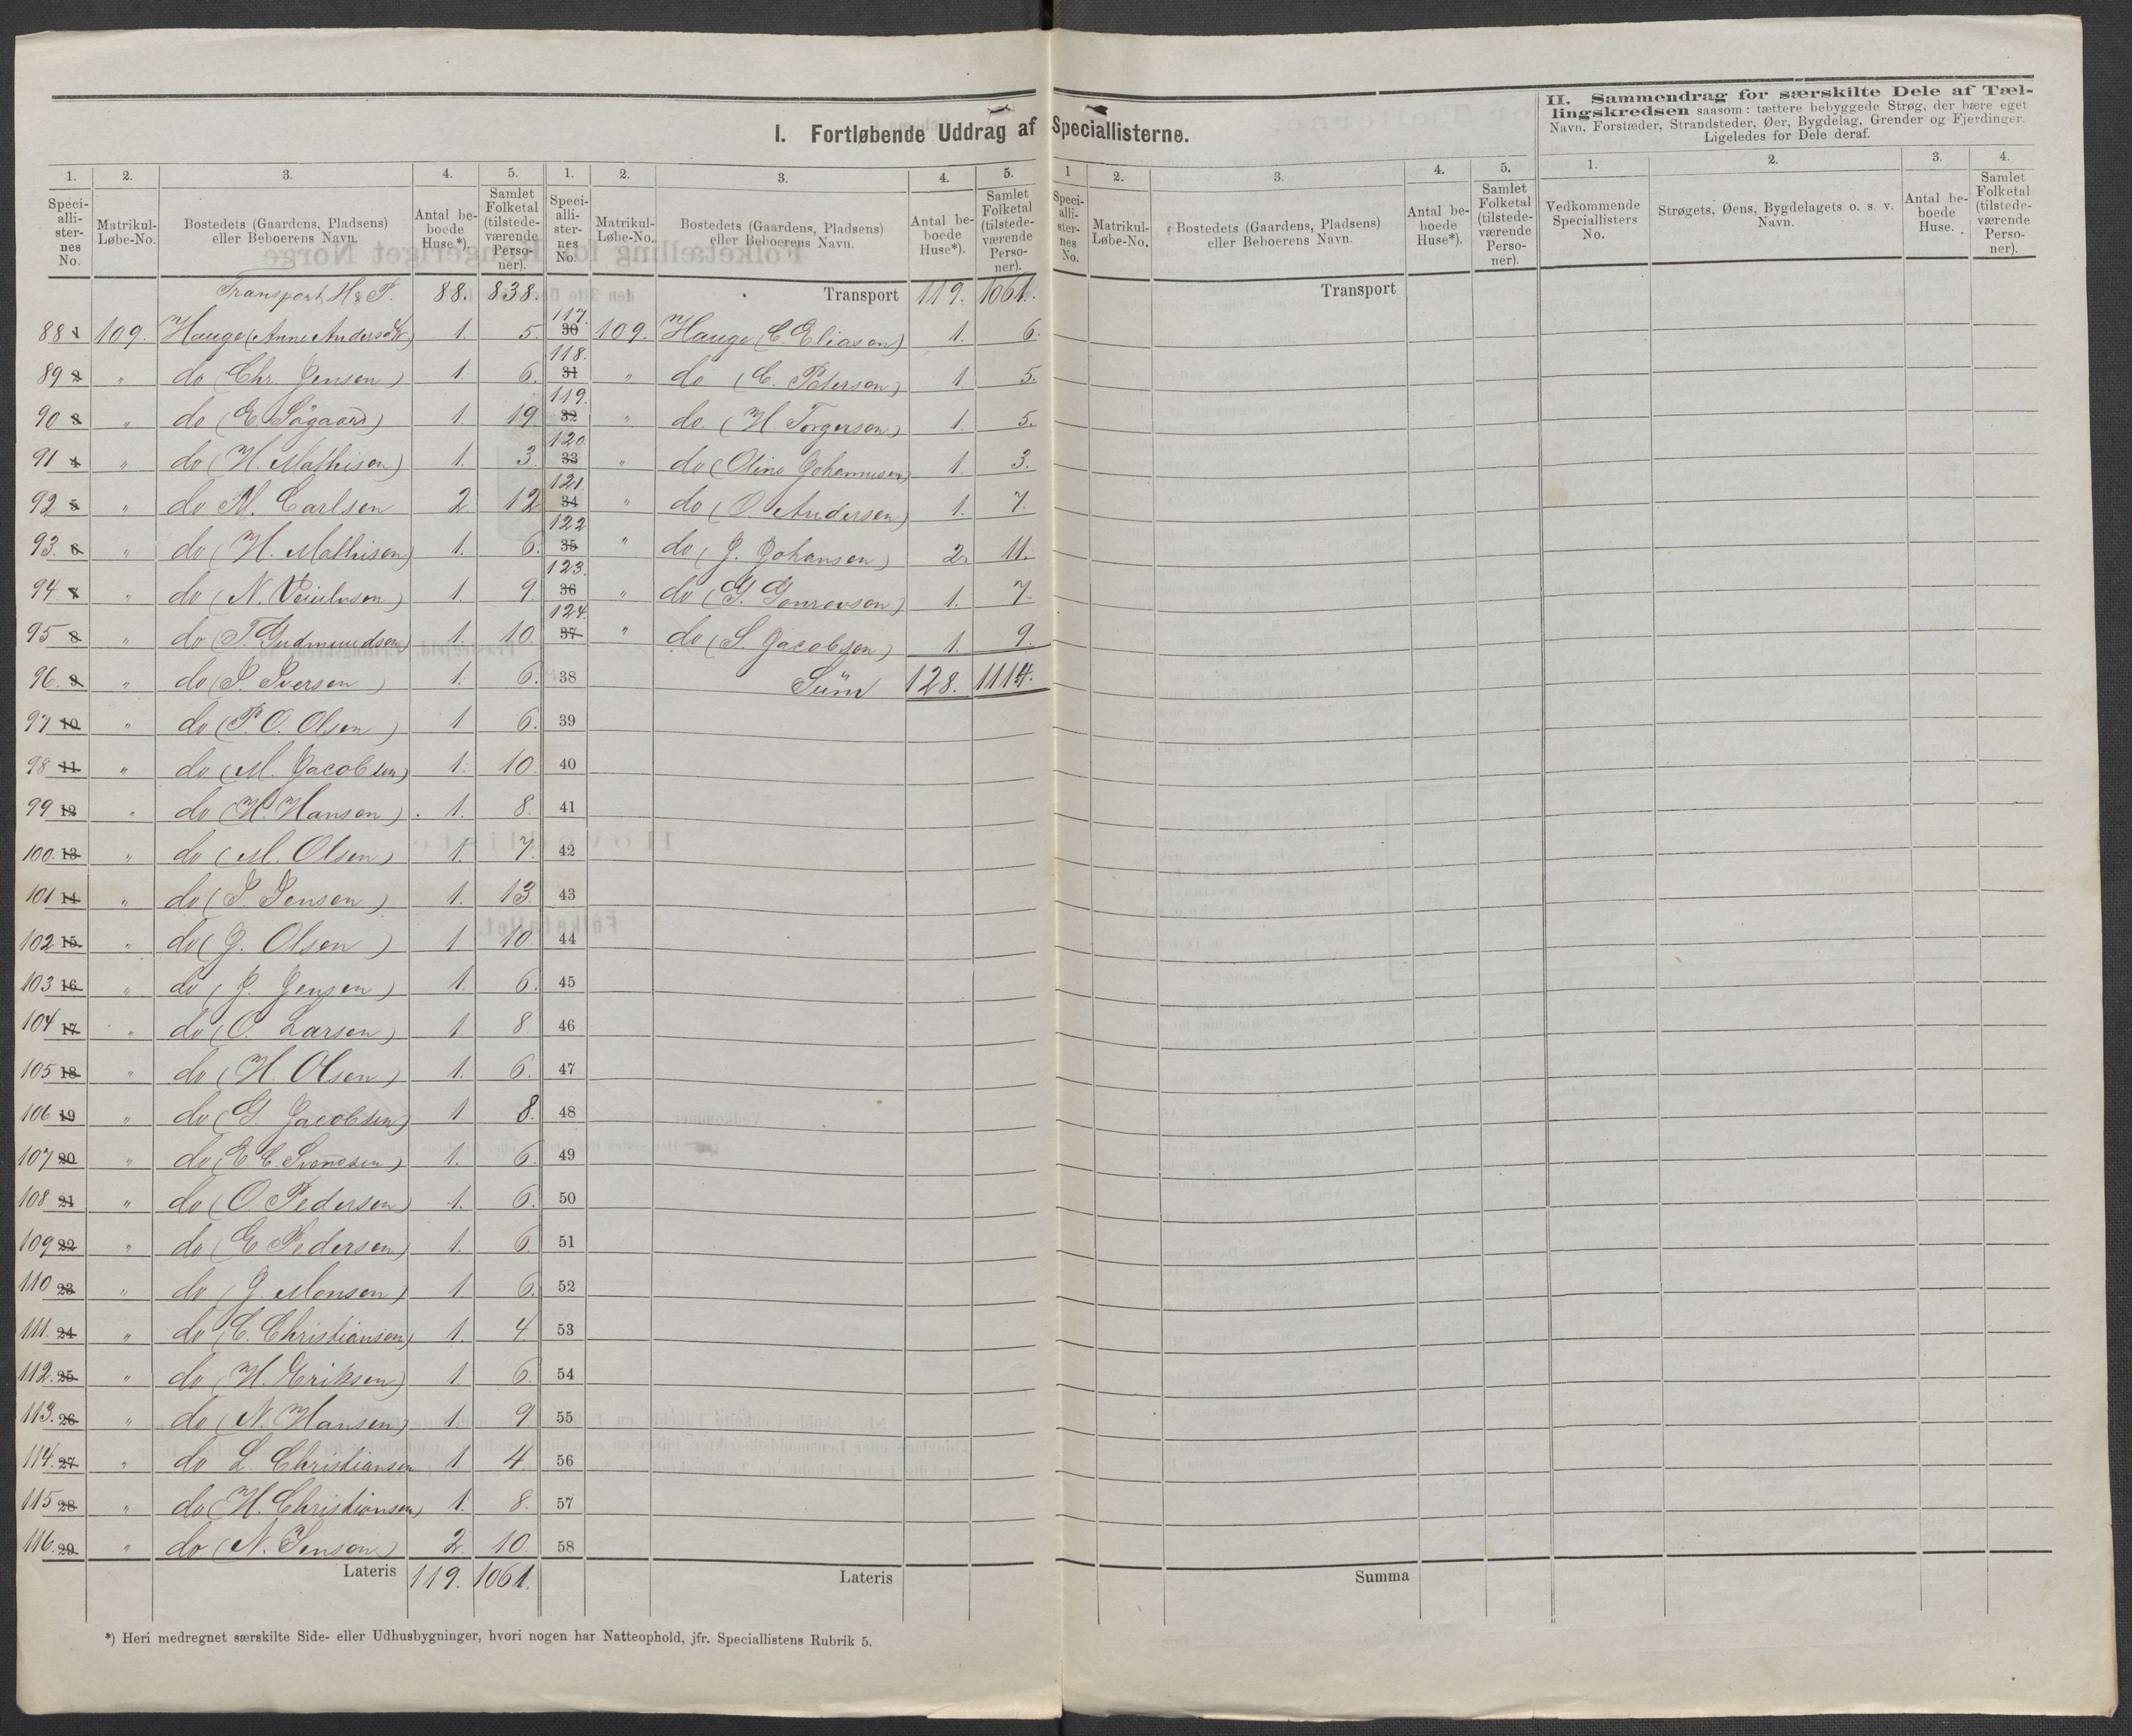 I. Fortløbende Uddrag af Speciallisterne.
1. 2. 3. 4. 5.
Speciallisternes No. Matrikul-Løbe-No. Bostedets (Gaardens, Pladsens) eller Beboerens Navn. Antal beboede Huse*). Samlet Folketal (tilstedeværende Personer).
Transport H & P. 88. 838.
88 1 109. Hauge (Anne Andersdtr) 1. 5.
89 2 " do (Chr. Jensen) 1. 6.
90 3 " do (E. Søgaard) 1. 19
91 4 " do (H. Mathisen) 1. 3.
92 5 " do M. Carlsen 2 12
93. 6 " do (H. Mathisen) 1. 6.
94 7 " do (N. 1. 9.
95 8 " do (T. Gudmundsen) 1. 10.
96. 9 " do (S. Iversen) 1. 6.
97 10 " do (P. O. Olsen) 1 6.
98 11 " do (M. Jacobsen) 1. 10.
99 12 " do (H. Hansen) 1. 8.
100. 13 " do (M. Olsen) 1. 7.
101 14 " do (S Jensen) 1. 13.
102 15 " do (J. Olsen) 1 10
103 16 " do (J. Jensen) 1. 6.
104 17 " do (O. Larsen) 1 8.
105 18 " do (H. Olsen) 1. 6.
106 19 " do (G. Jacobsen) 1 8.
107 20 " do (E C. Svendsen) 1. 6.
108 21 " do (O. Pedersen) 1. 6.
109 22 " do (E. Pedersen) 1. 6.
110 23 " do (J. Monsen) 1 6.
111. 24 " do (C. Christiansen) 1. 4.
112. 25 " do (H. Eriksen) 1. 6.
113. 26 " do (N. Hansen) 1. 9
114. 27 " do L. Christiansen 1. 4
115 28 " do (H. Christiansen) 1. 8.
116. 29 " do (N. Jensen) 2. 10.
Lateris 119. 1061.
*) Heri medregnet særskilte Side- eller Udhusbygninger, hvori nogen har Natteophold, jfr. Speciallistens Rubrik 5.
1. 2. 3. 4. 5.
Speciallisternes No. Matrikul-Løbe-No. Bostedets (Gaardens, Pladsens) eller Beboerens Navn. Antal beboede Huse*). Samlet Folketal (tilstedeværende Personer).
Transport 119. 1061.
117. 30 109. Hauge (C. Eliasen) 1. 6.
118. 31 " do (C. Petersen) 1 5.
119. 32 " do (H. Torgersen) 1. 5.
120. 33 " do (Oline Johannesen) 1. 3.
121. 34 " do (O. Andersen) 1. 7.
122 35 " do (J. Johansen) 2. 11.
123. 36 " do (G. 1. 7.
124. 37 " do (S. Jacobsen) 1. 9.
38 Sum 128. 1114.
39
40
41
42
43
44
45
46
47
48
49
50
51
52
53
54
55
56
57
58
Lateris
1 2. 3. 4. 5.
Speciallisternes No. Matrikul-Løbe-No. Bostedets (Gaardens, Pladsens) eller Beboerens Navn. Antal beboede Huse*). Samlet Folketal (tilstedeværende Personer).
Transport
Summa
II. Sammendrag for særskilte Dele af Tæl-
lingskredsen saasom: tættere bebyggede Strøg, der bære eget
Navn, Forstæder, Strandsteder, Øer, Bygdelag, Grender og Fjerdinger.
Ligeledes for Dele deraf.
1. 2. 3. 4.
Vedkommende Speciallisters No. Strøgets, Øens, Bygdelagets o. s. v. Navn. Antal beboede Huse. Samlet Folketal (tilstedeværende Personer).